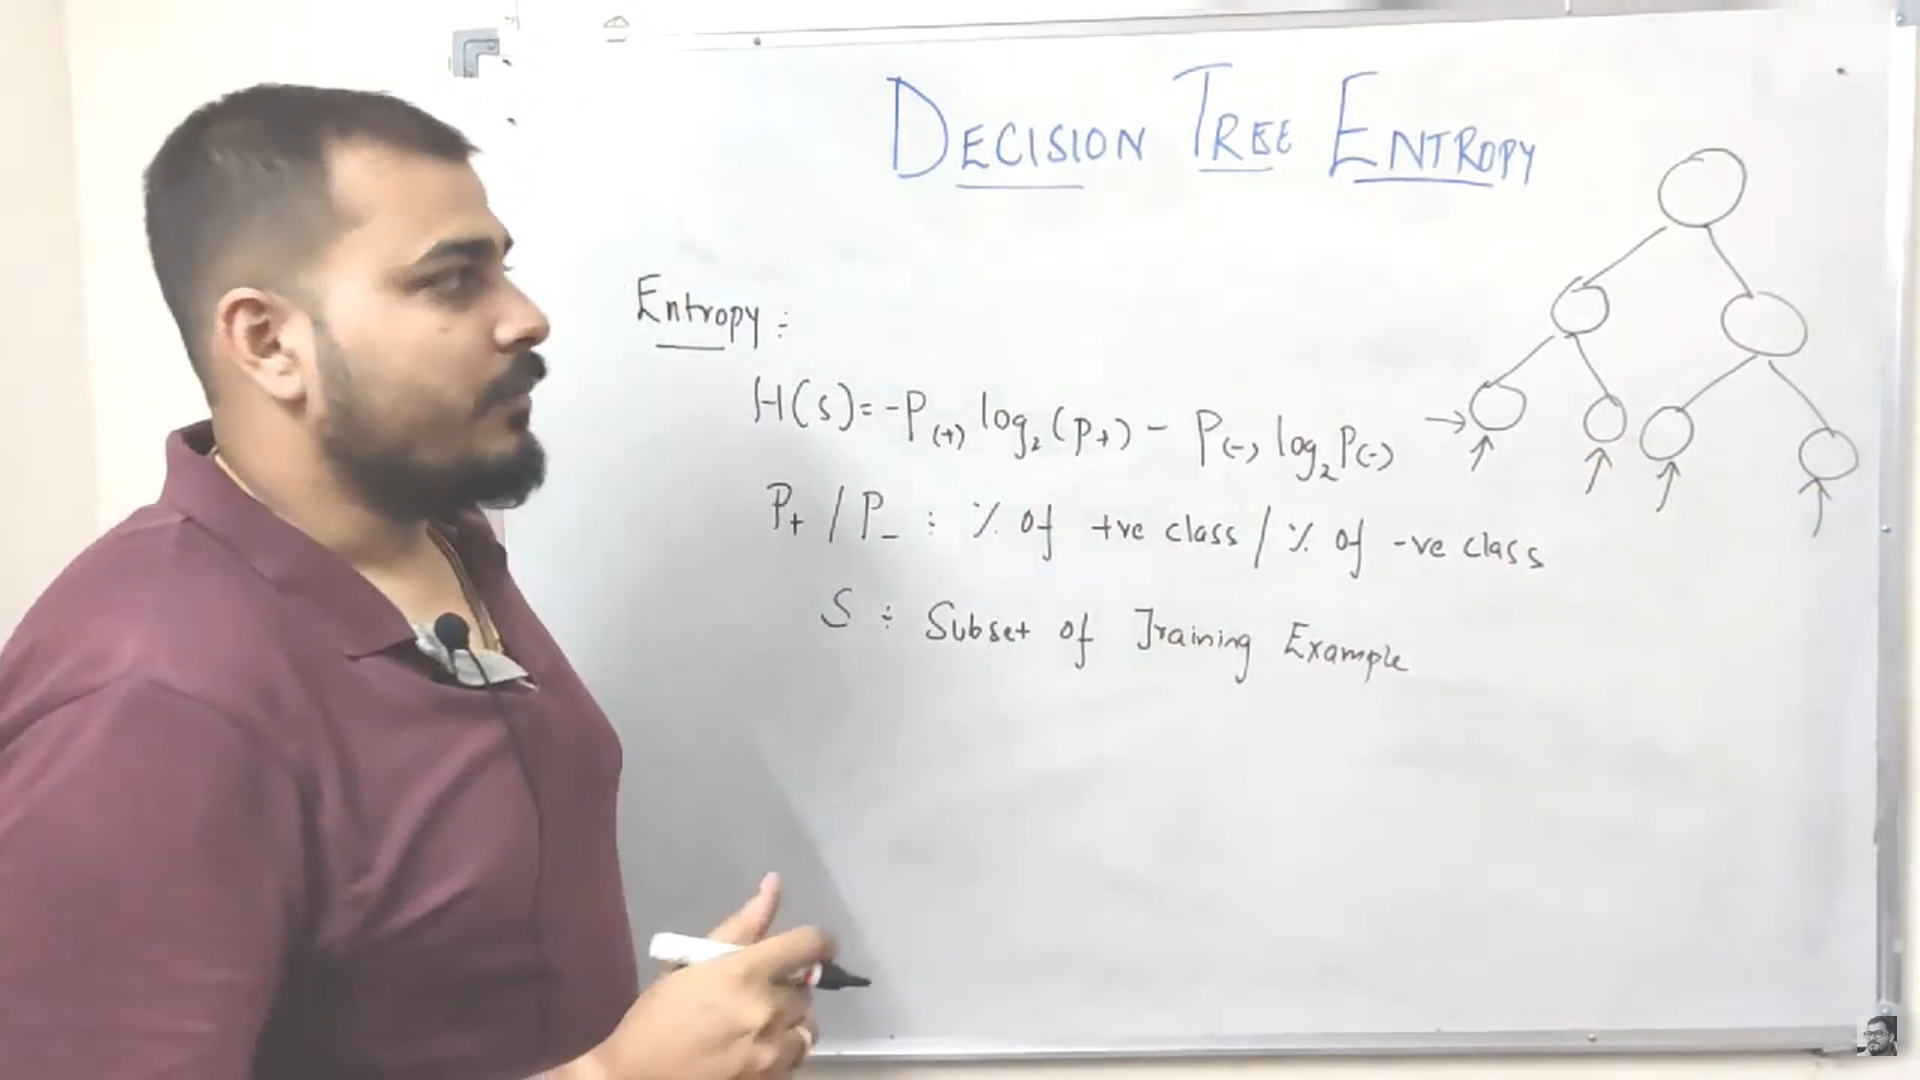 DECISION TREE ENTROPY
Entropy :
H(s)= -P(+) log₂(p+) - P(-) log₂P(-)
P+ / P- : % of +ve class / % of -ve class
S : Subset of Training Example